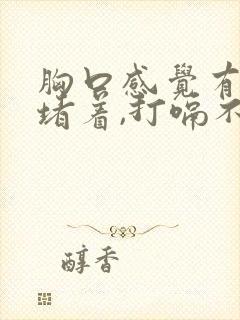 胸口感覺有
堵着,打嗝不
醇香